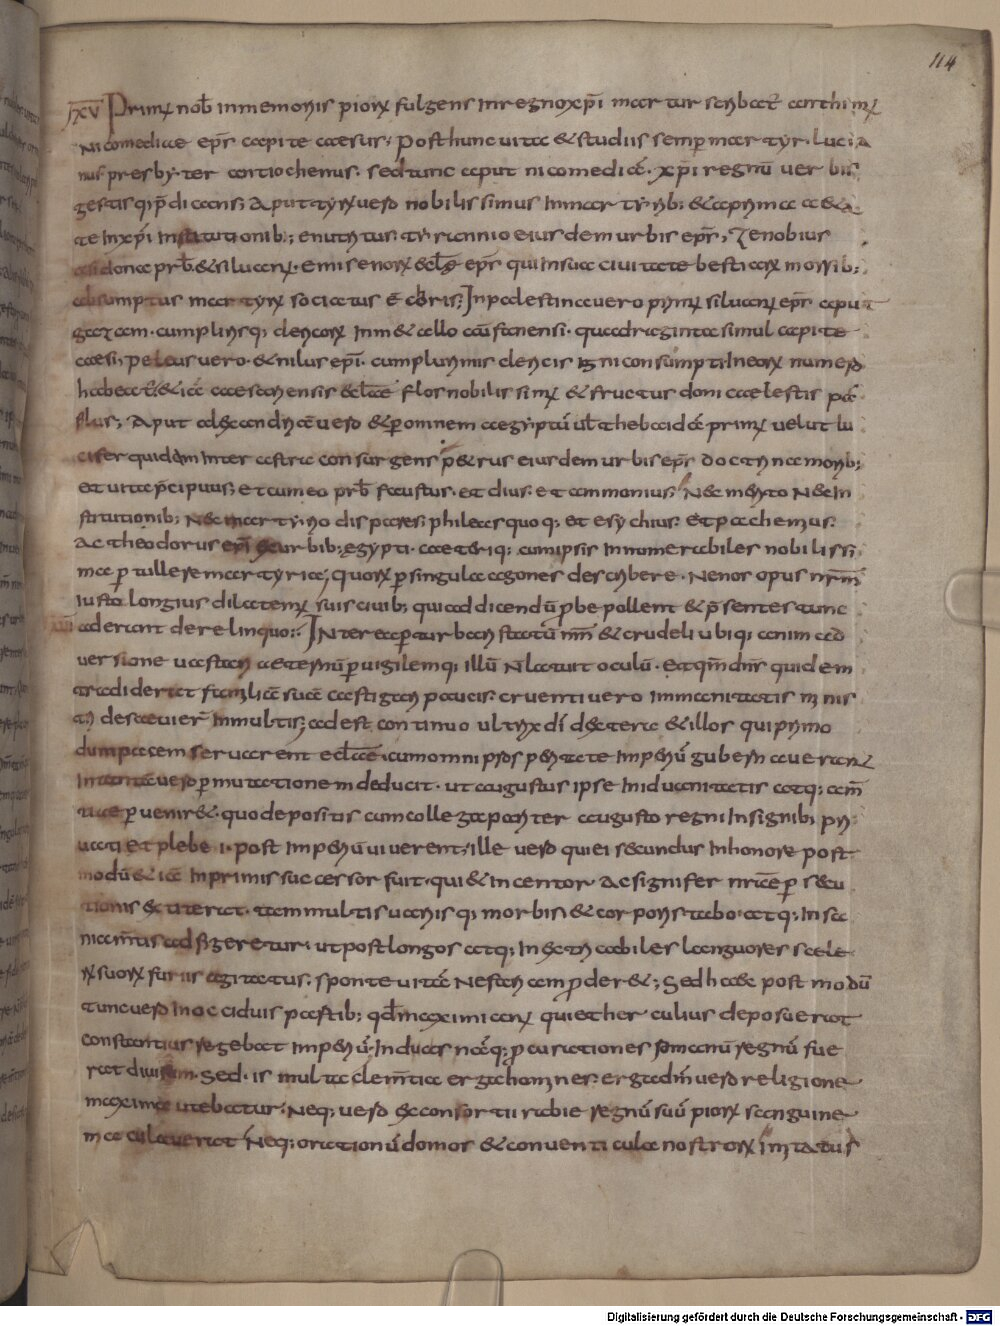 114
XV Primus nob̅ in memoriis piorꝝ fulgens in regno xp̅i martur scribat᷑ anthimꝰ
Nicomediae ep̅s capite caesus; Post hunc uita & studiis semp martyr. Lucia
nus presbyter antiochenus. sed tunc aput nicomediā. xp̅i regnū uerbis
gestisq; p̅dicans; Aput tyrū uero nobilissimus in martyrib; & a prima aeta
te in xp̅i institutionib; enutritus. tyrannio eiusdem urbis ep̅s, Zenobius
sidona prb̅. & siluanꝰ. emisenorꝝ eccl̅ę ep̅s qui in sua ciuitate bestiarꝝ morsib;
absumptus martyrꝝ sociatus ē choris; In palestina uero primꝰ siluanꝰ ep̅s aput
gazam. cum plurisq; clericorꝝ in metallo fanensi. quadraginta simul capite
caesi; Peleus uero. & nilus ep̅i. cum plurimis clericis igni consumpti. In eorꝝ numero
habeat᷑. & iā caesariensis eccl̅ae flos nobilissimꝰ & fructus doni caelestis pā
filus; Aput alexandriā uero & p omnem aegyptū ul̅ thebaidā primꝰ uelut lu
cifer quidam inter astra consurgens p&rus eiusdem urbis ep̅s doctrina morib;
et uita p̅cipuus; et cum eo prb̅ faustus. et dius. et ammonius; Nec merito nec in
stitutionib; nec martyrio dispares; phileas quoq; et esychius. et pachemius.
Ac theodorus ep̅i ex urbib; egypti. caeteriq; cum ipsis innumerabiles nobilissi
ma p tullere martyria; quorꝝ p singula agones describere. Nen or opus nr̅m̅
iusto longius dilatemꝰ suis ciuib; qui ad dicendū pbe pollent & p̅sentes tunc
aderant derelinquo; Interea p turbati statū & crudeli ubiq; animad
uersione uastati aeternū p uigilemq; illū oculū. quidem
tradiderat familiā suā castigari paucis. cruenti uero inmanitatis minis
tri desaeuier̅ in multis; adest continuo ultrix d̅i dextera & illos qui primo
dum pacem seruarent eccl̅ae. cum omni p̅sp̅ritate imperiū gubernauerant
in uero p mutationem deducit. ut augustus ipse in id uanitatis atq; am̅
tiae p uenir&. quo depositis cum collega pariter augusto regni insignib; pri
uati et plebei. post imperiū uiuerent; ille uero qui ei secundus in honore post
modū & iā in primis successor fuit. qui & incentor ac signifer nr̅ae p secu
tionis extiterat. tam multis uariisq; morbis, & corporis tabo. atq; insa
nia m̅tis adfigeretur. ut post longos atq; inextricabiles languores scele
rꝝ suorꝝ furiis agitatus; sponte uitā nefariam p der&; Sed haec post modū
tunc uero in occiduis partib; qd̅ maximianꝰ qui et herculius deposuerat
constantius regebat imperiū. In duas nāq; pcurationes romanū regnū fue
rat diuisum. Sed is multa clem̅tia erga homines. erga d̅m uero religione
maxima utebatur. Neq; uero ex consortii rabie regnū suū piorꝝ sanguine
maculauerat. Neq; orationū domos & conuenticula nostrorꝝ imitatus
Digitalisierung gefördert durch die Deutsche Forschungsgemeinschaft - DFG